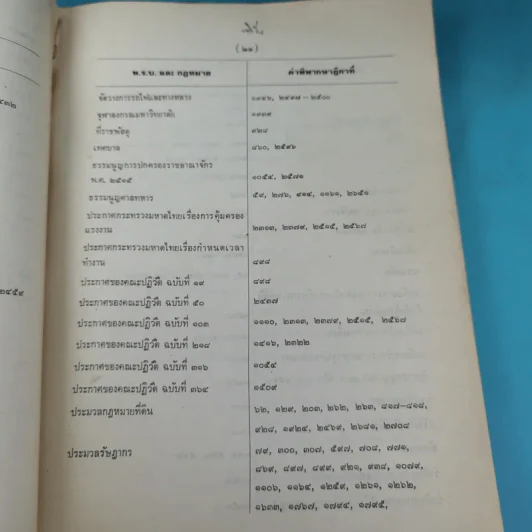 (๒๑)
พ.ร.บ. และ กฎหมาย คำพิพากษาฎีกาที่
จัดวางการรถไฟและทางหลวง ๑๓๔๖, ๒๔๙๗–๒๕๐๐
จุฬาลงกรณ์มหาวิทยาลัย ๑๓๓๙
ที่ราชพัสดุ ๙๒๘
เทศบาล ๘๖๐, ๒๕๙๖
ธรรมนูญการปกครองราชอาณาจักร
พ.ศ. ๒๕๑๕ ๑๐๕๔, ๒๕๗๑
ธรรมนูญศาลทหาร ๕๙, ๒๗๖, ๙๑๔, ๑๑๖๑, ๒๖๕๑
ประกาศกระทรวงมหาดไทยเรื่องการคุ้มครอง
แรงงาน ๒๓๑๓, ๒๓๗๙, ๒๕๑๕, ๒๕๖๘
ประกาศกระทรวงมหาดไทยเรื่องกำหนดเวลา
ทำงาน ๘๙๘
ประกาศของคณะปฏิวัติ ฉบับที่ ๑๙ ๘๙๘
ประกาศของคณะปฏิวัติ ฉบับที่ ๕๐ ๒๔๓๗
ประกาศของคณะปฏิวัติ ฉบับที่ ๑๐๓ ๑๑๑๐, ๒๓๑๓, ๒๓๗๙, ๒๕๑๕, ๒๕๖๘
ประกาศของคณะปฏิวัติ ฉบับที่ ๒๑๘ ๑๔๑๖, ๒๓๒๒
ประกาศของคณะปฏิวัติ ฉบับที่ ๓๑๖ ๑๐๕๔
ประกาศของคณะปฏิวัติ ฉบับที่ ๓๖๔ ๑๕๐๙
ประมวลกฎหมายที่ดิน ๖๒, ๑๒๙, ๒๐๓, ๒๖๒, ๒๖๓, ๘๑๗–๘๑๘,
๙๒๘, ๑๙๒๔, ๒๔๖๙, ๒๖๘๑, ๒๗๐๘
ประมวลรัษฎากร ๗๙, ๓๐๐, ๓๐๗, ๕๙๗, ๗๐๘, ๗๗๑,
๘๖๙, ๘๙๗, ๘๙๙, ๙๒๑, ๙๓๘, ๑๐๗๙,
๑๑๐๖, ๑๑๖๔, ๑๒๕๙, ๑๒๖๑, ๑๒๖๒,
๑๖๓๓, ๑๗๖๗, ๑๗๙๔, ๑๗๙๕,